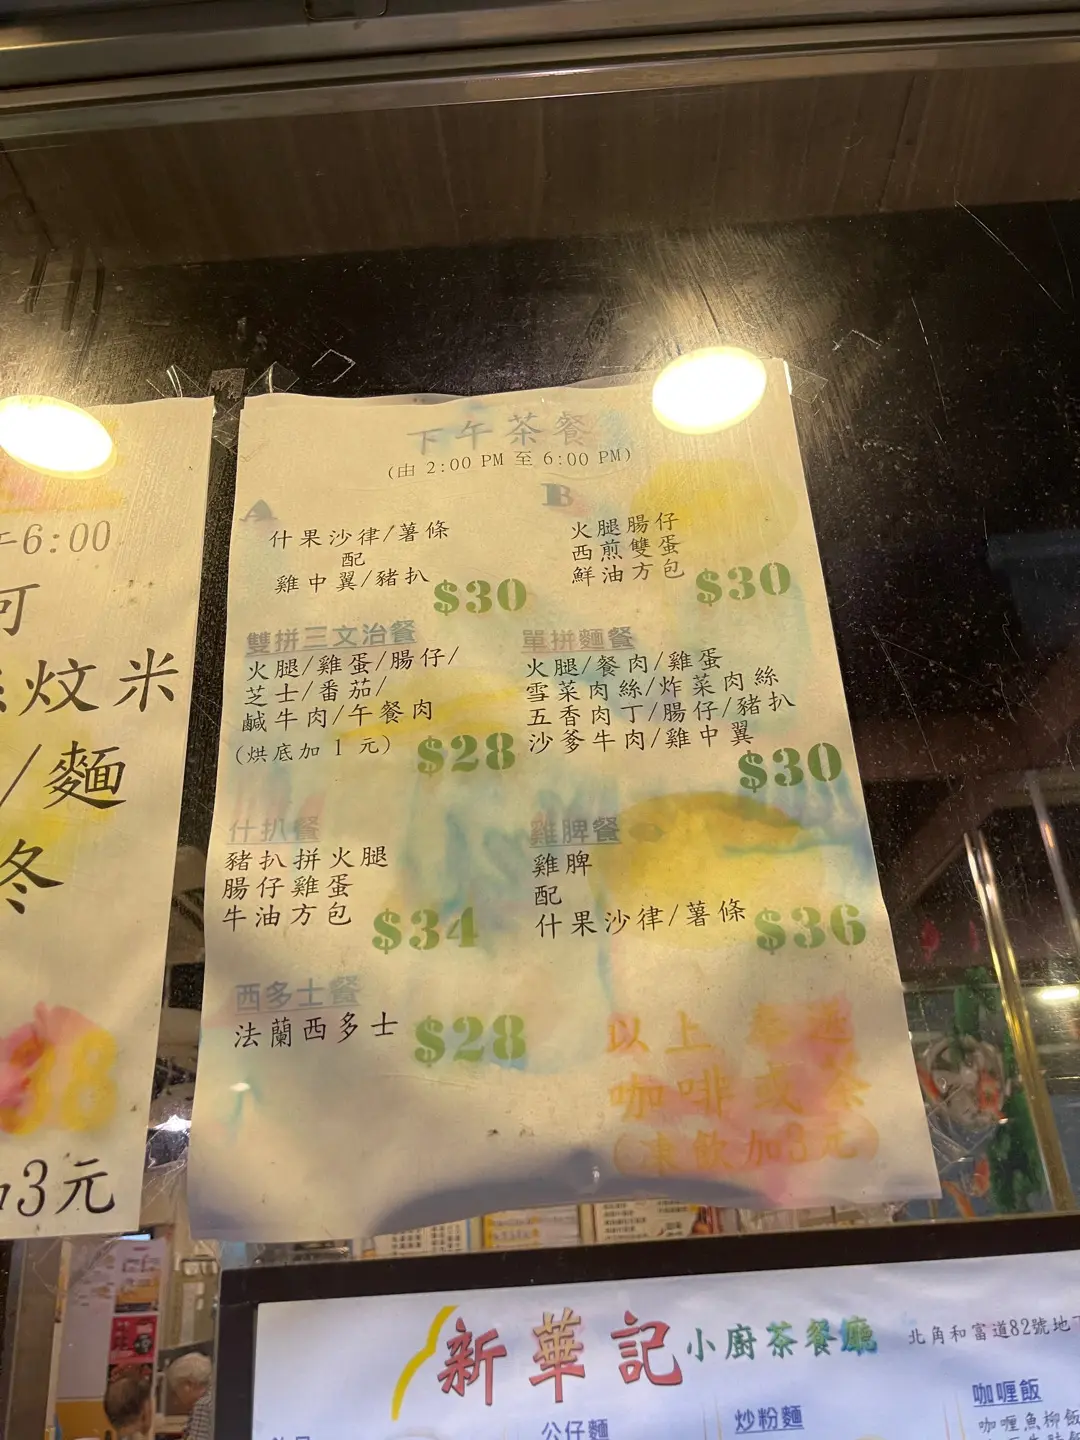 午6:00
可
炆米
/麵
冬
38
加3元
下午茶餐
(由 2:00 PM 至 6:00 PM)
A
什果沙律/薯條
配
雞中翼/豬扒
$30
B
火腿腸仔
西煎雙蛋
鮮油方包
$30
雙拼三文治餐
火腿/雞蛋/腸仔/
芝士/番茄/
鹹牛肉/午餐肉
(烘底加1元)
$28
單拼麵餐
火腿/餐肉/雞蛋
雪菜肉絲/炸菜肉絲
五香肉丁/腸仔/豬扒
沙爹牛肉/雞中翼
$30
什扒餐
豬扒拼火腿
腸仔雞蛋
牛油方包
$34
雞脾餐
雞脾
配
什果沙律/薯條
$36
西多士餐
法蘭西多士
$28
以上
咖啡或茶
(凍飲加3元)
新華記小廚茶餐廳
北角和富道82號地下
公仔麵
炒粉麵
咖喱飯
咖喱魚柳飯